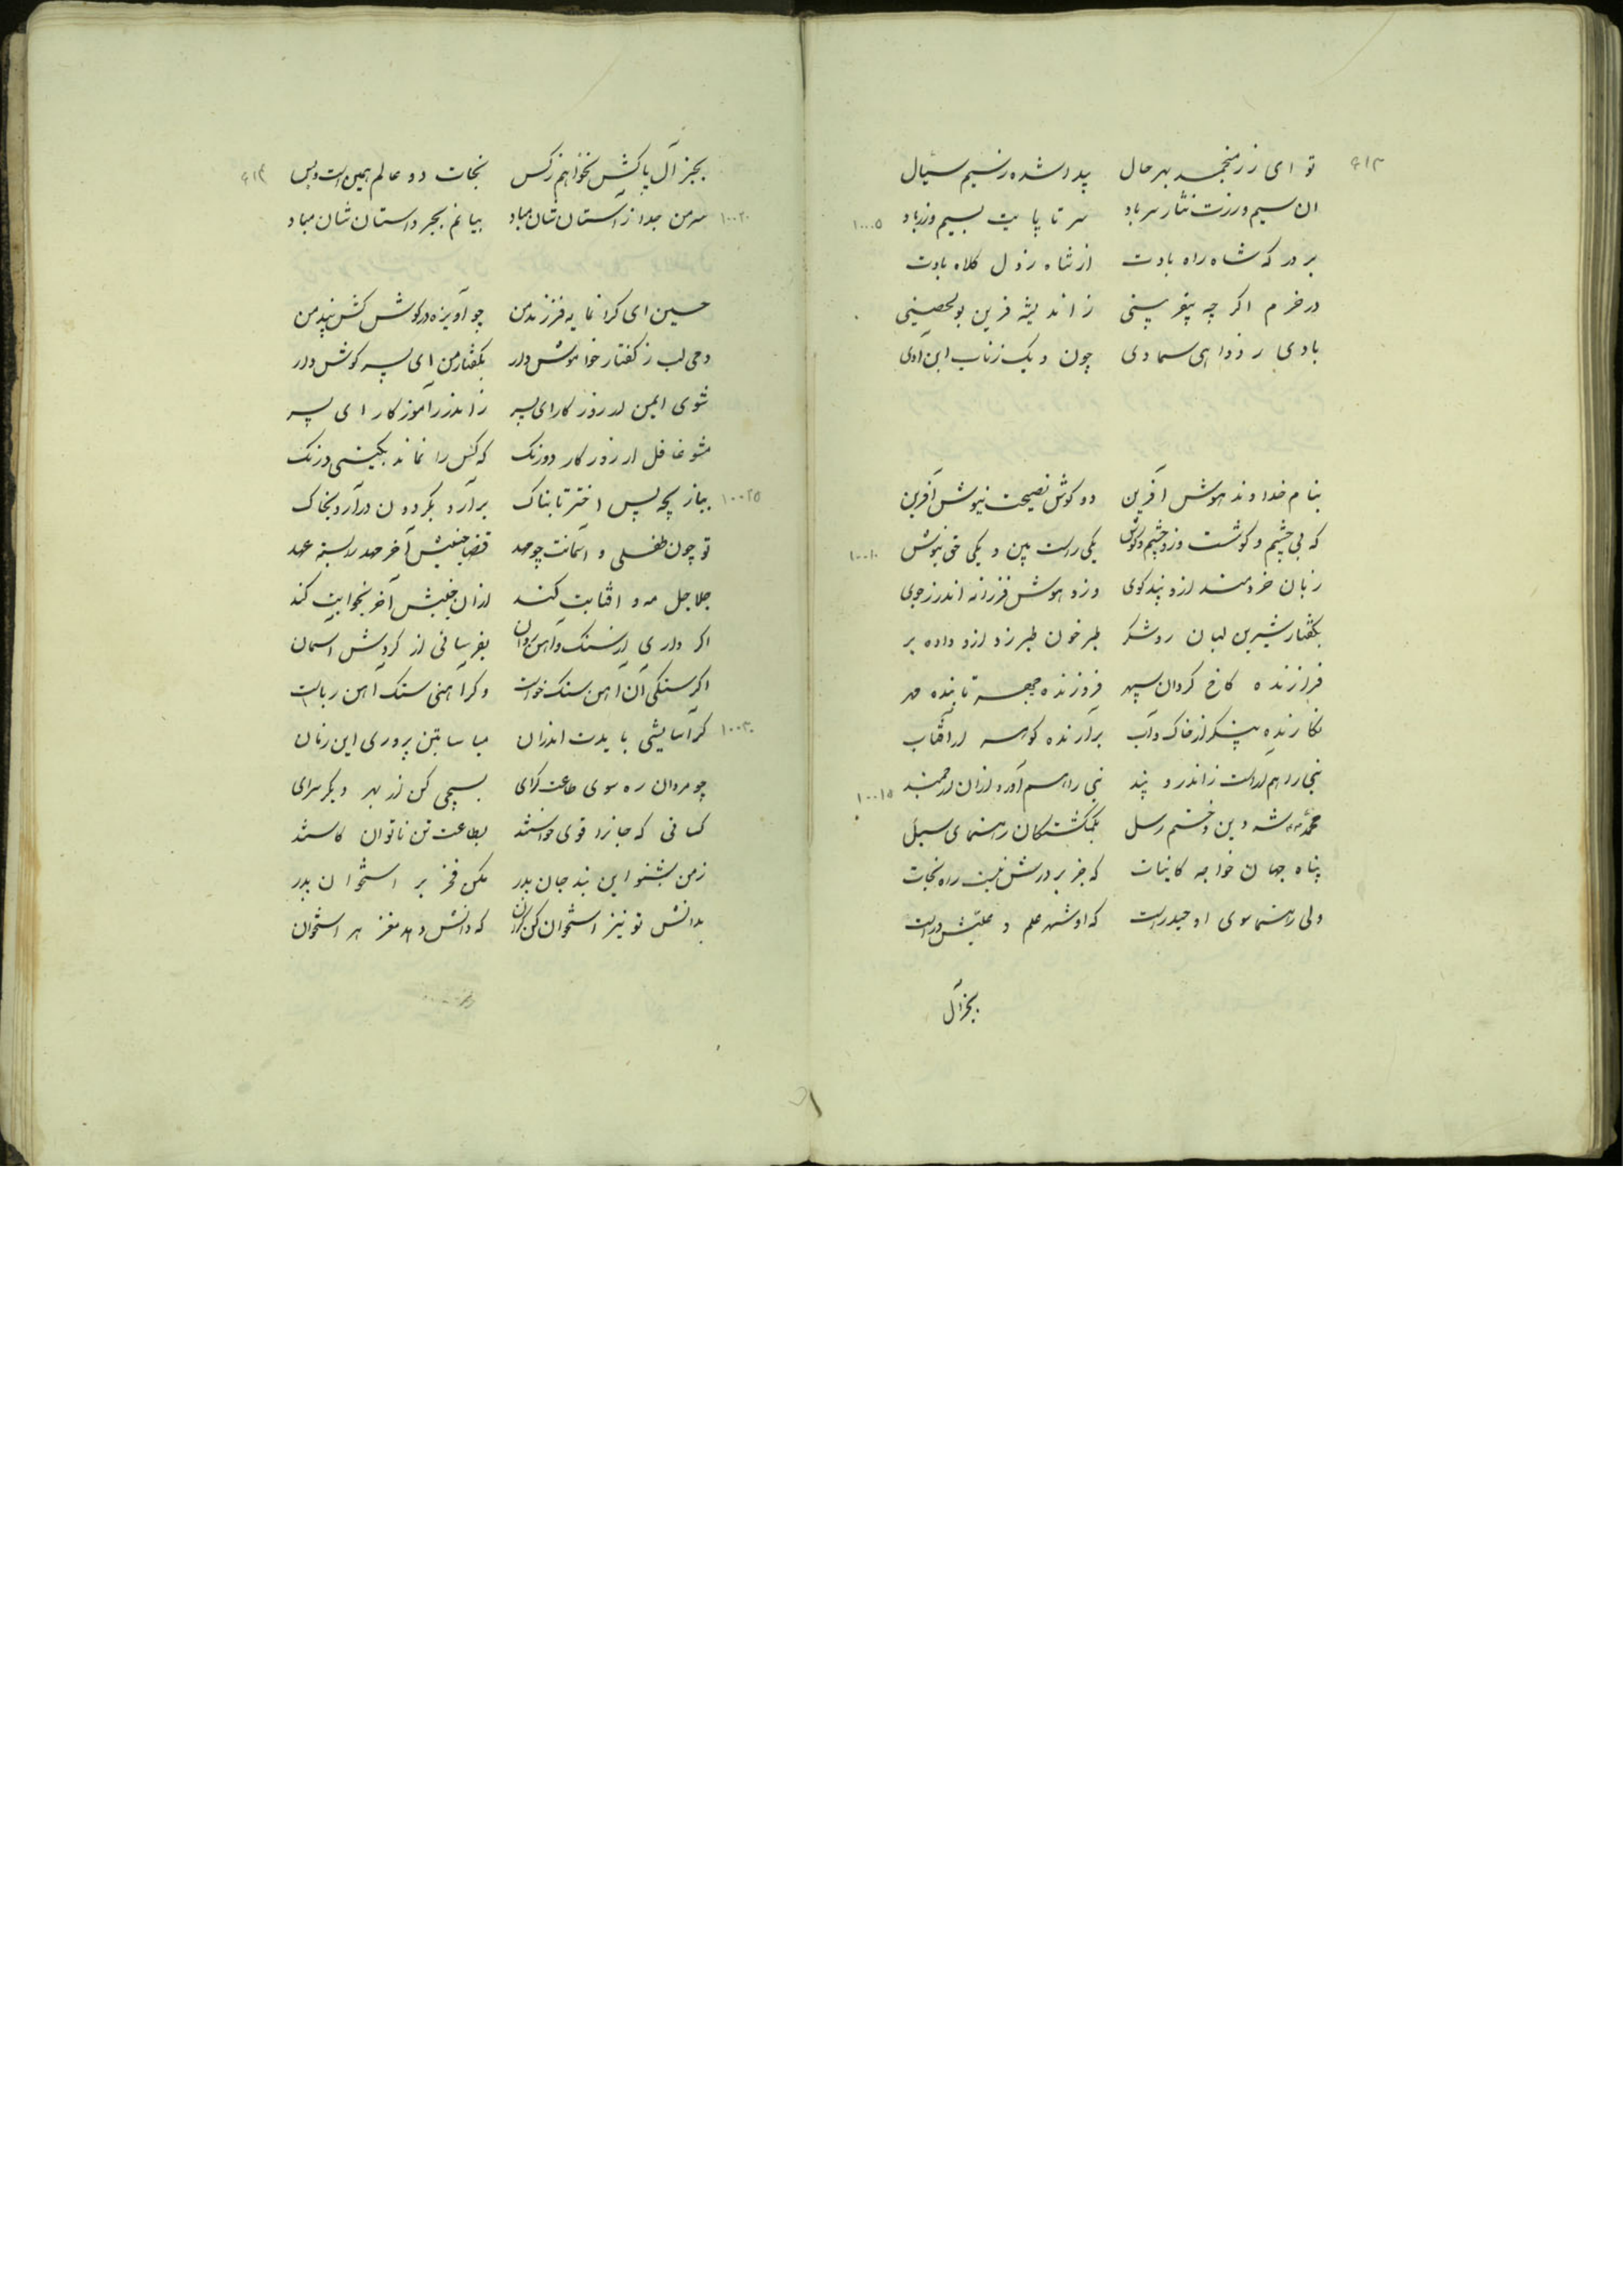 تو ای زر منجمد بهر حال پیدا شده ز سیم سیال
ان سیم و زرت نثار سر باد سر تا پایت بسیم و زر باد
بر در که شاه راه بادت از شاه کلاه بادت
در خرم اکر چه ز اندیشه قرین بو الحصینی
بادی چون ویک زتاب
بنام خداوند هوش آفرین دو کوش نصیحت نیوش آفرین
که بی چشم و کوشست وزو چشم و کوش یکی راست بین و یکی حق نیوش
زبان خردمند ازو پند کوی وزو هوش فرزانه اندرز جوی
بکفتار شیرین لبان روشکر طبرخون طبرزد ازو داده بر
فرازنده کاخ کردان سپهر فروزنده چهره تابنده مهر
نکارنده پیکر از خاک و آب برآرنده کوهر از آفتاب
نبی را هم آراست ز اندرز و پند نبی را هم آورد ازان ارجمند
محمد شه دین و ختم رسل بکمکشتکان رهنمای سبل
پناه جهان خواجه کاینات که جز بر درش نیست راه نجات
ولی رهنما سوی او حیدرست که او شهر علم و علیش درست
بجز آل
۱۰۰۰۵
۱۰۰۱۰
۱۰۰۱۵
بجز آل پاکش نخواهم ز کس نجات دو عالم همین است و بس
سر من جدا ز آستان شان مباد بیانم بجز داستان شان مباد
حسین ای کرانمایه فرزند من چو آویزه در کوش کش پند من
دمی لب ز کفتار خاموش دار بکفتار من ای پسر کوش دار
شوی ایمن از روزکار ای پسر ز اندرز آموزکار ای پسر
مشو غافل از روزکار دورنک که کس را نماند بکیتی درنک
ببازیچه پس اختر تابناک برآرد بکردون درآرد بخاک
تو چون طفلی و آسمانت چو مهد قضا جنبش آخر مهد را بسته عهد
جلاجل مه و افتابت کند ازان جنبش آخر بخوابت کند
اکر داری از سنک و آهن روان بفرسانی از کردش اسمان
اکر سنکی آن اهن سنک خواست وکر آهنی سنک اهن رباست
کر آسایشی بایدت اندران میاسا بتن پروری این زمان
چو مردان ره سوی طاعت کرای بسیچی کن از بهر دیکر سرای
کسانی که جانرا قوی خواستند بطاعت تن ناتوان کاستند
ز من بشنو این پند جان پدر مکن فخر بر استخوان پدر
بدانش تو نیز استخوان کن کران که دانش دهد مغز هر استخوان
۱۰۰۲۰
۱۰۰۲۵
۱۰۰۳۰